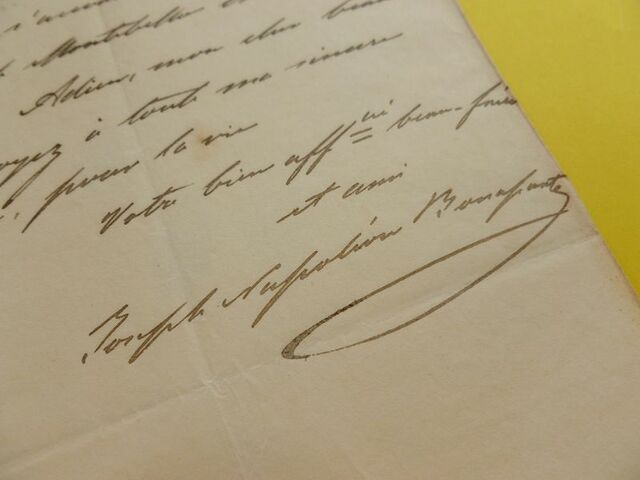 j'accu
Montebello
Adieu, mon cher beau
oyez à toute ma sincère
, pour la vie
Votre bien aff^né beau-frère
et ami
Joseph Napoléon Bonaparte